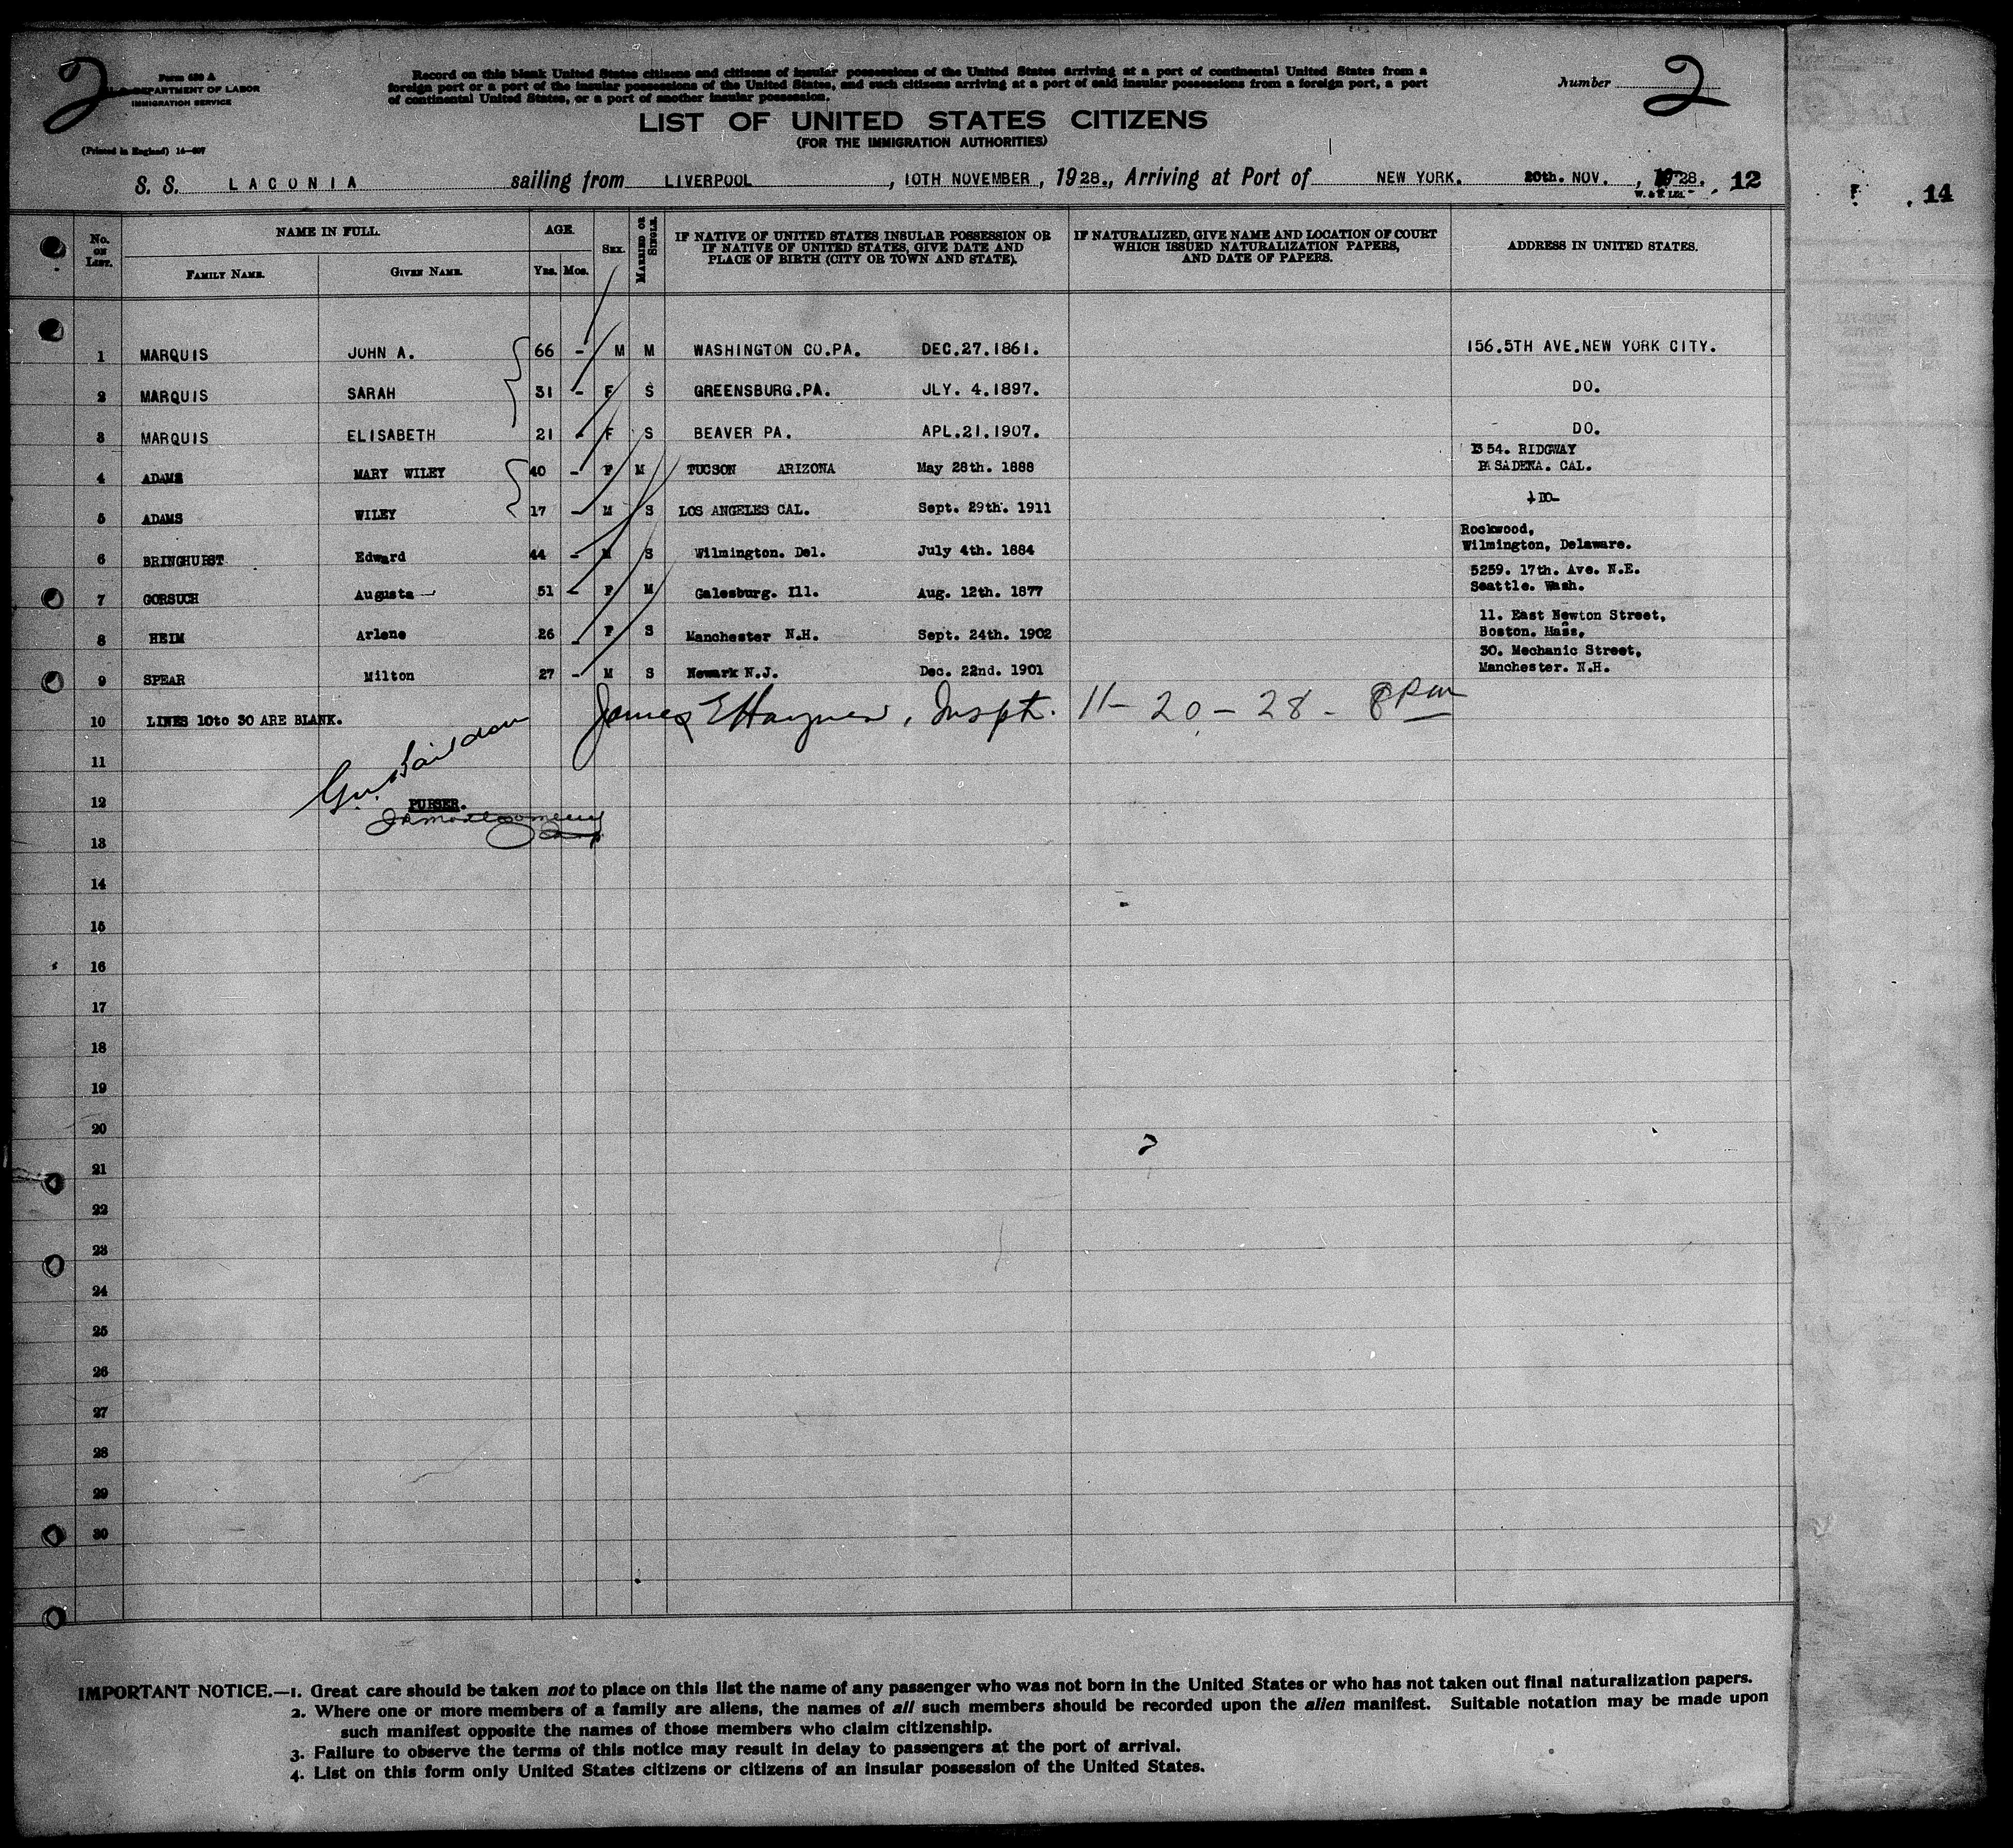 2
Form 630 A
DEPARTMENT OF LABOR
IMMIGRATION SERVICE
(Printed in England) 14—607
Record on this blank United States citizens and citizens of insular possessions of the United States arriving at a port of continental United States from a
foreign port or a port of the insular possessions of the United States, and such citizens arriving at a port of said insular possessions from a foreign port, a port
of continental United States, or a port of another insular possession.
Number 2
LIST OF UNITED STATES CITIZENS
(FOR THE IMMIGRATION AUTHORITIES)
S. S. LACONIA sailing from LIVERPOOL, 10TH NOVEMBER, 1928., Arriving at Port of NEW YORK. 20th. NOV., 1928. 12
14
No. ON LIST. NAME IN FULL. AGE. SEX. MARRIED OR SINGLE. IF NATIVE OF UNITED STATES INSULAR POSSESSION OR IF NATIVE OF UNITED STATES, GIVE DATE AND PLACE OF BIRTH (CITY OR TOWN AND STATE). IF NATURALIZED, GIVE NAME AND LOCATION OF COURT WHICH ISSUED NATURALIZATION PAPERS, AND DATE OF PAPERS. ADDRESS IN UNITED STATES.
FAMILY NAME. GIVEN NAME. YRS. MOS.
1 MARQUIS JOHN A. 66 - M M WASHINGTON CO.PA. DEC.27.1861. 156.5TH AVE.NEW YORK CITY.
2 MARQUIS SARAH 31 - F S GREENSBURG.PA. JLY. 4.1897. DO.
3 MARQUIS ELISABETH 21 - F S BEAVER PA. APL.21.1907. DO.
4 ADAMS MARY WILEY 40 - F M TUCSON ARIZONA May 28th. 1888 1354. RIDGWAY
PASADENA. CAL.
5 ADAMS WILEY 17 - M S LOS ANGELES CAL. Sept. 29th. 1911 DO-
6 BRINGHURST Edward 44 - M S Wilmington. Del. July 4th. 1884 Rockwood,
Wilmington, Delaware.
7 GORSUCH Augusta 51 - F M Galesburg. Ill. Aug. 12th. 1877 5259. 17th. Ave. N.E.
Seattle. Wash.
8 HEIM Arlene 26 - F S Manchester N.H. Sept. 24th. 1902 11. East Newton Street,
Boston. Mass,
9 SPEAR Milton 27 - M S Newark N.J. Dec. 22nd. 1901 30. Mechanic Street,
Manchester. N.H.
10 LINES 10to 30 ARE BLANK. James E Haynes, Inspt. 11-20-28- 8 PM
11
12 PURSER.
13
14
15
16
17
18
19
20
21
22
23
24
25
26
27
28
29
30
IMPORTANT NOTICE.—1. Great care should be taken not to place on this list the name of any passenger who was not born in the United States or who has not taken out final naturalization papers.
2. Where one or more members of a family are aliens, the names of all such members should be recorded upon the alien manifest. Suitable notation may be made upon
such manifest opposite the names of those members who claim citizenship.
3. Failure to observe the terms of this notice may result in delay to passengers at the port of arrival.
4. List on this form only United States citizens or citizens of an insular possession of the United States.